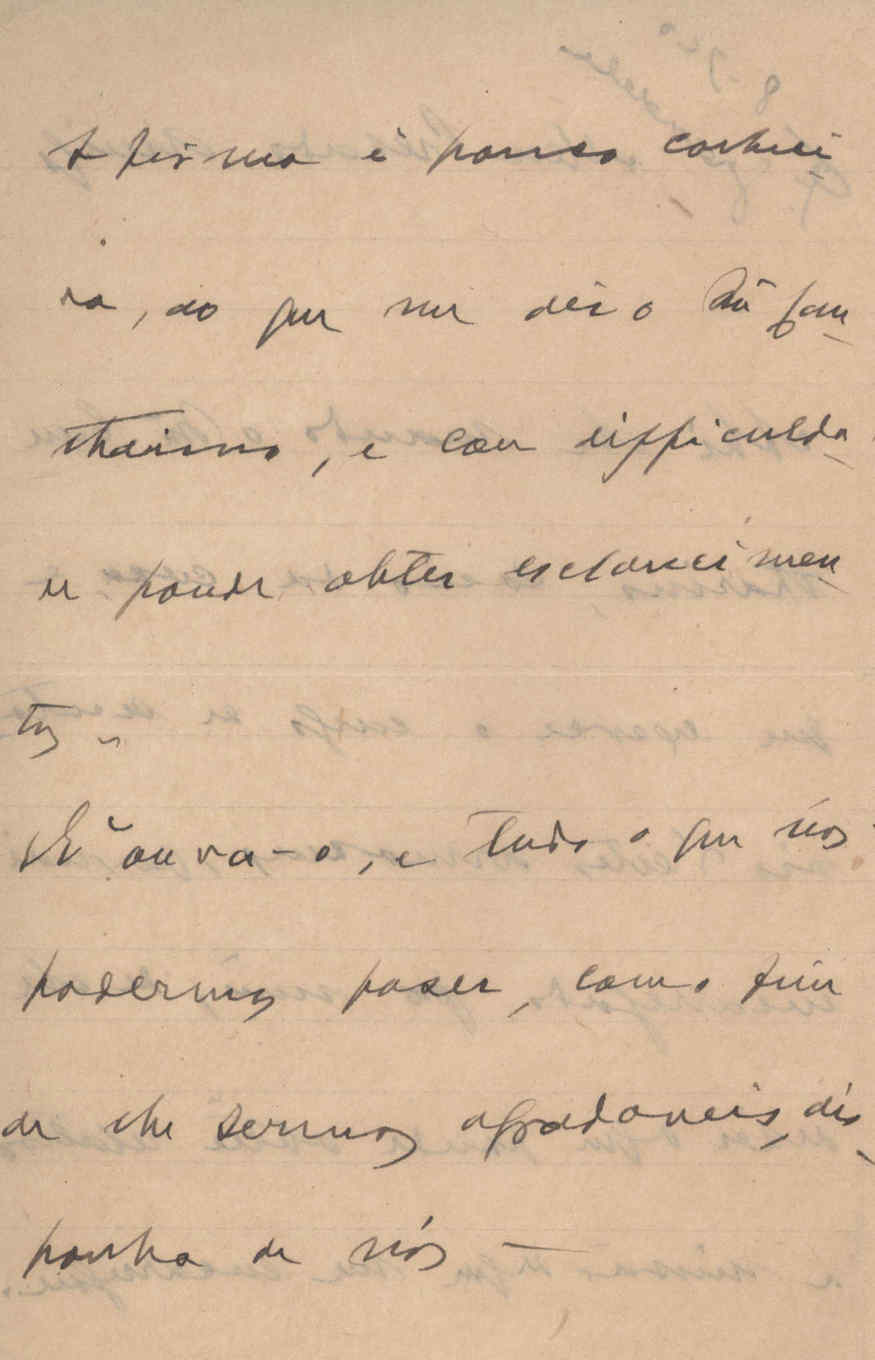 A firma é pouco conheci
da, ao que me diz o
, e com difficulda-
de poude obter esclarecimen
tos.
ouva-o, e tudo o que nós
podermos fazer, com o fim
de lhe sermos agradaveis, dis-
ponha de nós —